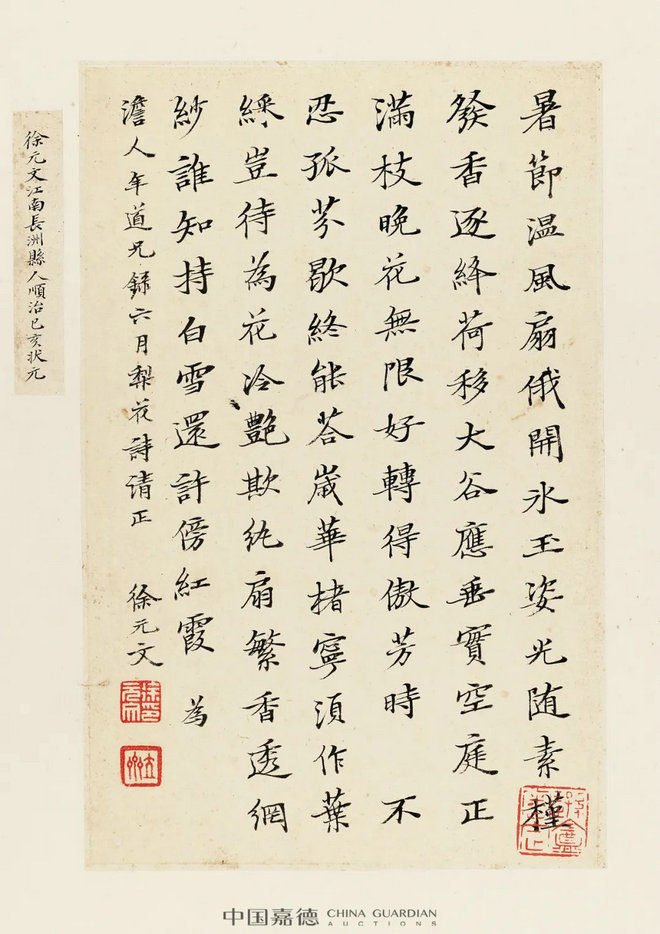 暑節温風扇俄開氷玉姿光随素槿
發香逐絳荷移大谷應垂實空庭正
滿枝晚花無限好轉得傲芳時 不
忍孤芬歇終能荅歲華楮寧須作葉
綵豈待為花冷艷欺紈扇繁香透網
紗誰知持白雪還許傍紅霞 為
澹人年道兄錄六月梨花詩請正 徐元文
徐元文江南長洲縣人順治已亥状元
中国嘉德 CHINA GUARDIAN
AUCTIONS